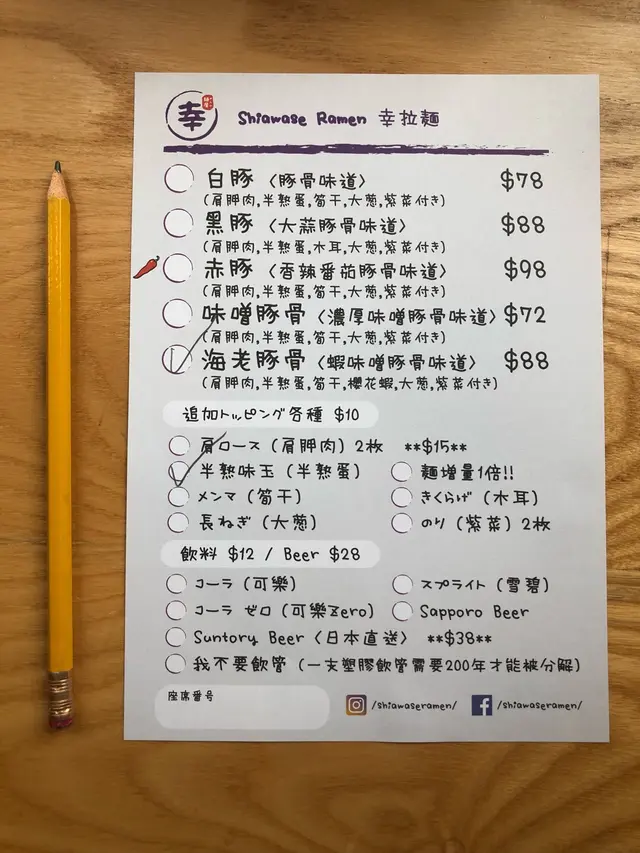 幸 Shiawase Ramen 幸拉麵
白豚〈豚骨味道〉 $78
(肩胛肉,半熟蛋,筍干,大葱,紫菜付き)
黑豚〈大蒜豚骨味道〉 $88
(肩胛肉,半熟蛋,木耳,大葱,紫菜付き)
赤豚〈香辣番茄豚骨味道〉 $98
(肩胛肉,半熟蛋,筍干,大葱,紫菜付き)
味噌豚骨〈濃厚味噌豚骨味道〉 $72
(肩胛肉,半熟蛋,筍干,大葱,紫菜付き)
海老豚骨〈蝦味噌豚骨味道〉 $88
(肩胛肉,半熟蛋,筍干,櫻花蝦,大葱,紫菜付き)
追加トッピング各種 $10
肩ロース(肩胛肉)2枚 **$15**
半熟味玉(半熟蛋) 麵增量1倍!!
メンマ(筍干) きくらげ(木耳)
長ねぎ(大葱) のり(紫菜)2枚
飲料 $12 / Beer $28
コーラ(可樂) スプライト(雪碧)
コーラ ゼロ(可樂Zero) Sapporo Beer
Suntory Beer〈日本直送〉 **$38**
我不要飲管(一支塑膠飲管需要200年才能被分解)
座席番号
/shiawaseramen/ /shiawaseramen/